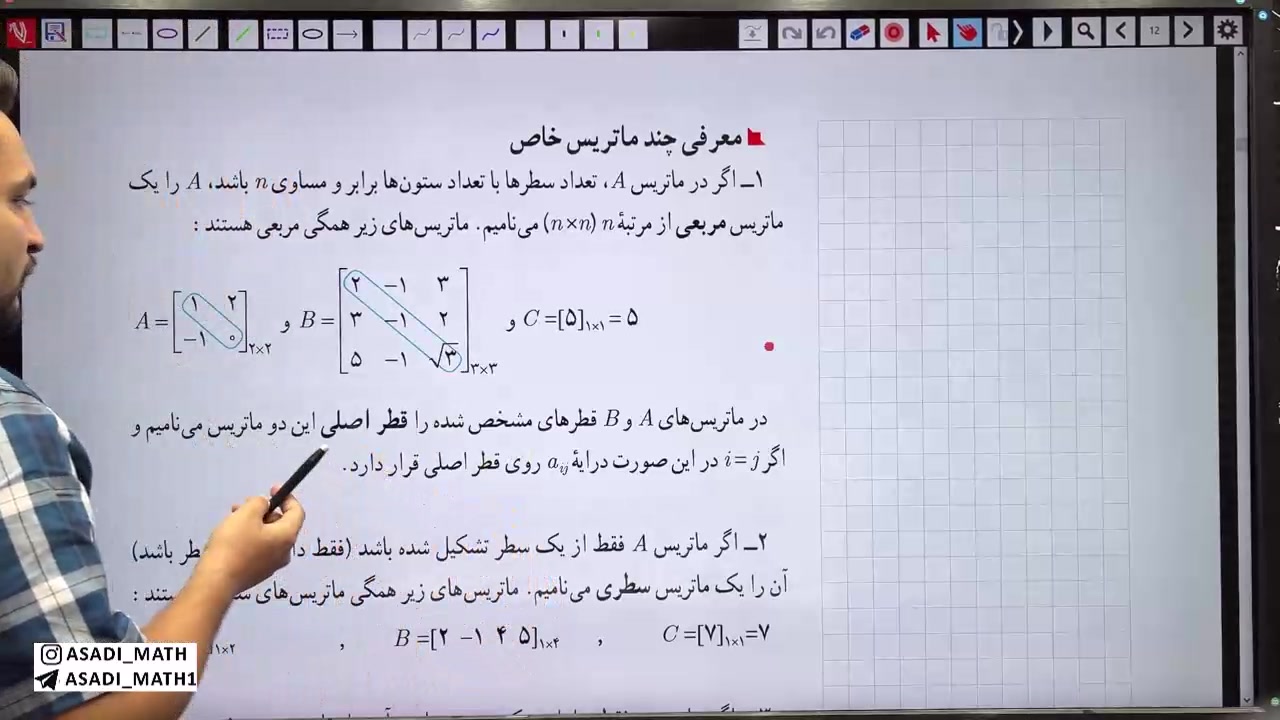 12
معرفی چند ماتریس خاص
۱ــ اگر در ماتریس A، تعداد سطرها با تعداد ستون‌ها برابر و مساوی n باشد، A را یک
ماتریس مربعی از مرتبهٔ n (n×n) می‌نامیم. ماتریس‌های زیر همگی مربعی هستند :
A = [۱ ۲ ; −۱ ۰]۲×۲ و B = [۲ −۱ ۳ ; ۳ −۱ ۲ ; ۵ −۱ √۳]۳×۳ و C = [۵]۱×۱ = ۵
در ماتریس‌های A و B قطرهای مشخص شده را قطر اصلی این دو ماتریس می‌نامیم و
اگر i = j در این صورت درایهٔ aij روی قطر اصلی قرار دارد.
۲ــ اگر ماتریس A فقط از یک سطر تشکیل شده باشد (فقط باشد)
آن را یک ماتریس سطری می‌نامیم. ماتریس‌های زیر همگی ماتریس‌های :
۱×۲ , B = [۲ −۱ ۴ ۵]۱×۴ , C = [۷]۱×۱ = ۷
ASADI_MATH
ASADI_MATH1